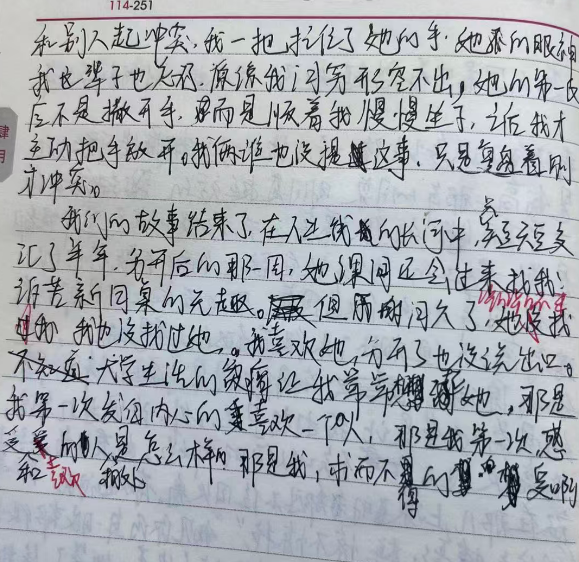 114-251
和别人起冲突，我一把拉住了她的手。她那的眼神
我这辈子也忘不了，原谅我词穷形容不出，她的第一反
应不是撒开手，而是顺着我慢慢坐下，之后我才
主动把手放开。我俩谁也没提这事，只是复盘着刚
才冲突。
我们的故事结束了，在人生线的长河中，只短短交
汇了半年，分开后的那一周，她课间还会过来找我
诉苦新同桌的无趣。但时间久了，她没找
过我 我也没找过她。我喜欢她，分开了也没说出口。
不知道 大学生活的 让我常常想起她，那是
我第一次发自内心的喜欢一个人，那是我第一次感
受 的人是怎么样 那是我，求而不得的 爱啊
和喜欢